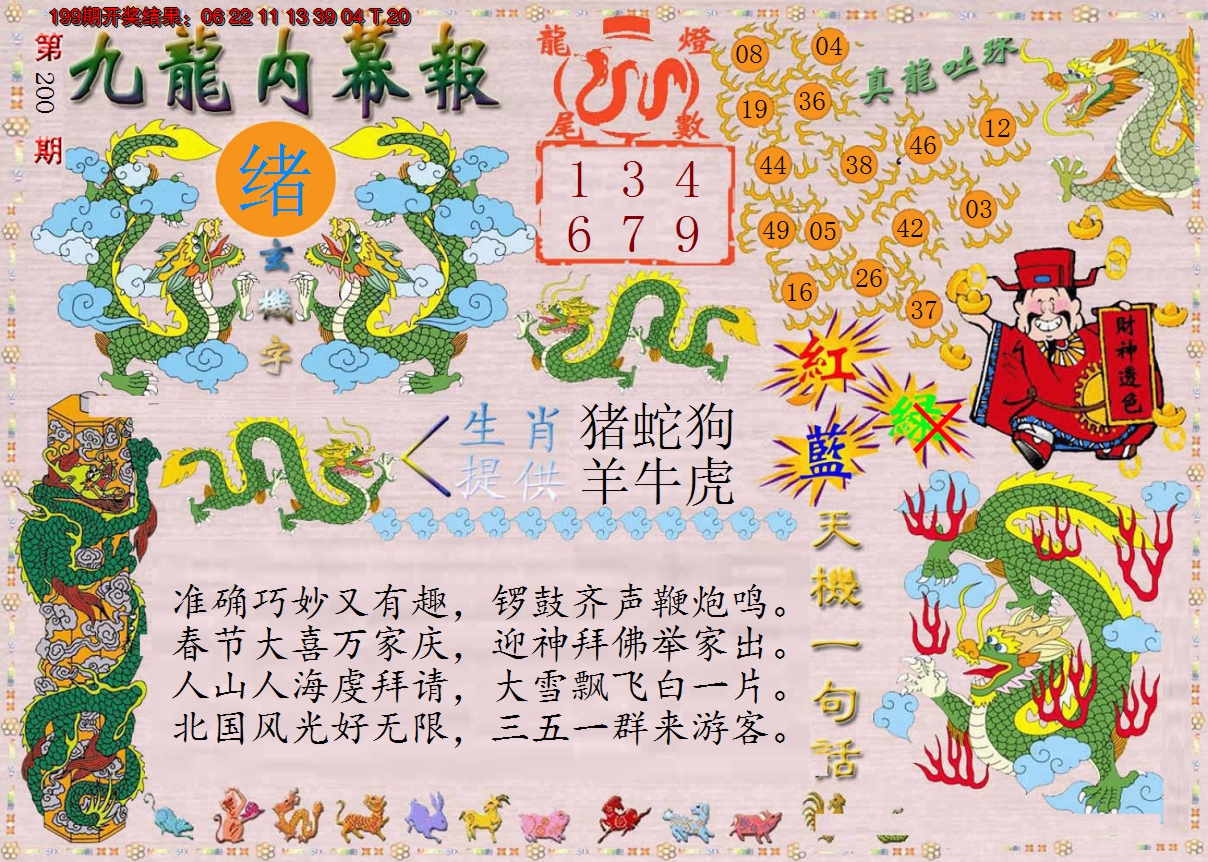 199期开奖结果：06 22 11 13 39 04 T 20
第200期
九龍内幕報
绪
玄機字
龍燈
尾數
1 3 4
6 7 9
真龍吐珠
08 04
19 36
46 12
44 38
03
49 05 42
26
16 37
財神透色
紅
綠
藍
生肖 猪蛇狗
提供 羊牛虎
天機一句话
准确巧妙又有趣，锣鼓齐声鞭炮鸣。
春节大喜万家庆，迎神拜佛举家出。
人山人海虔拜请，大雪飘飞白一片。
北国风光好无限，三五一群来游客。